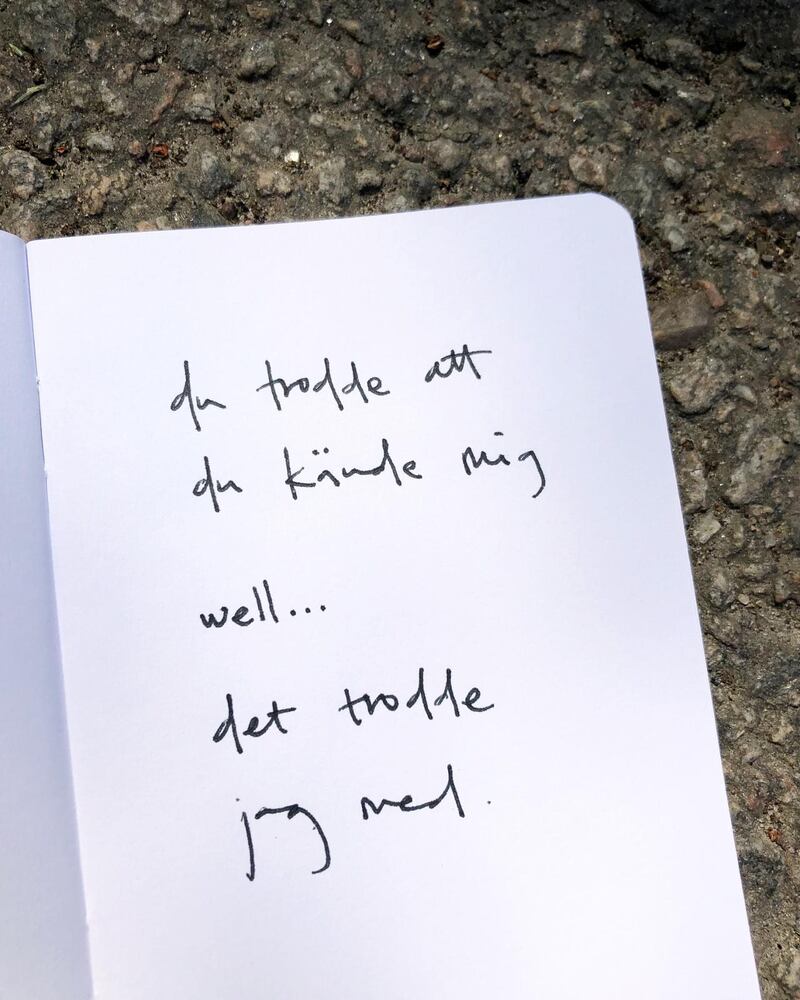 du trodde att
du kände mig
well...
det trodde
jag med.